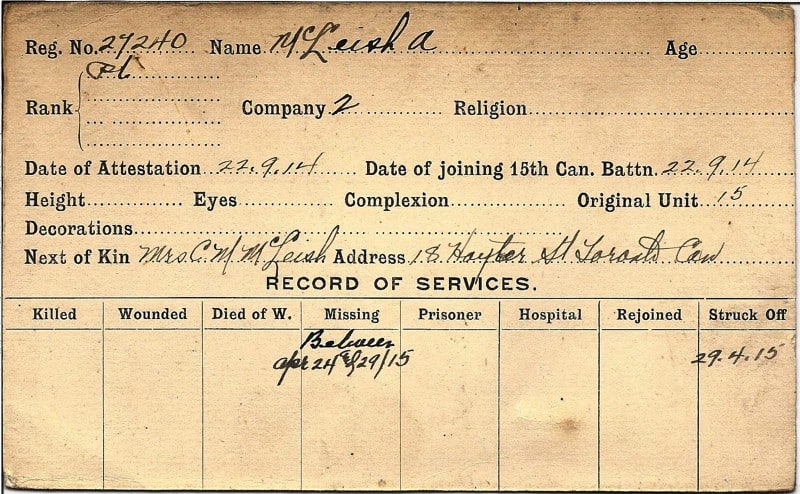 Reg. No. 27240 Name McLeish A Age
Pt
Rank Company 2 Religion
Date of Attestation 22.9.14 Date of joining 15th Can. Battn. 22.9.14
Height Eyes Complexion Original Unit 15
Decorations
Next of Kin Mrs C. M McLeish Address 18 Hayter St Toronto Can
RECORD OF SERVICES.
Killed Wounded Died of W. Missing Prisoner Hospital Rejoined Struck Off
Between
Apr 24 & 29/15 29.4.15